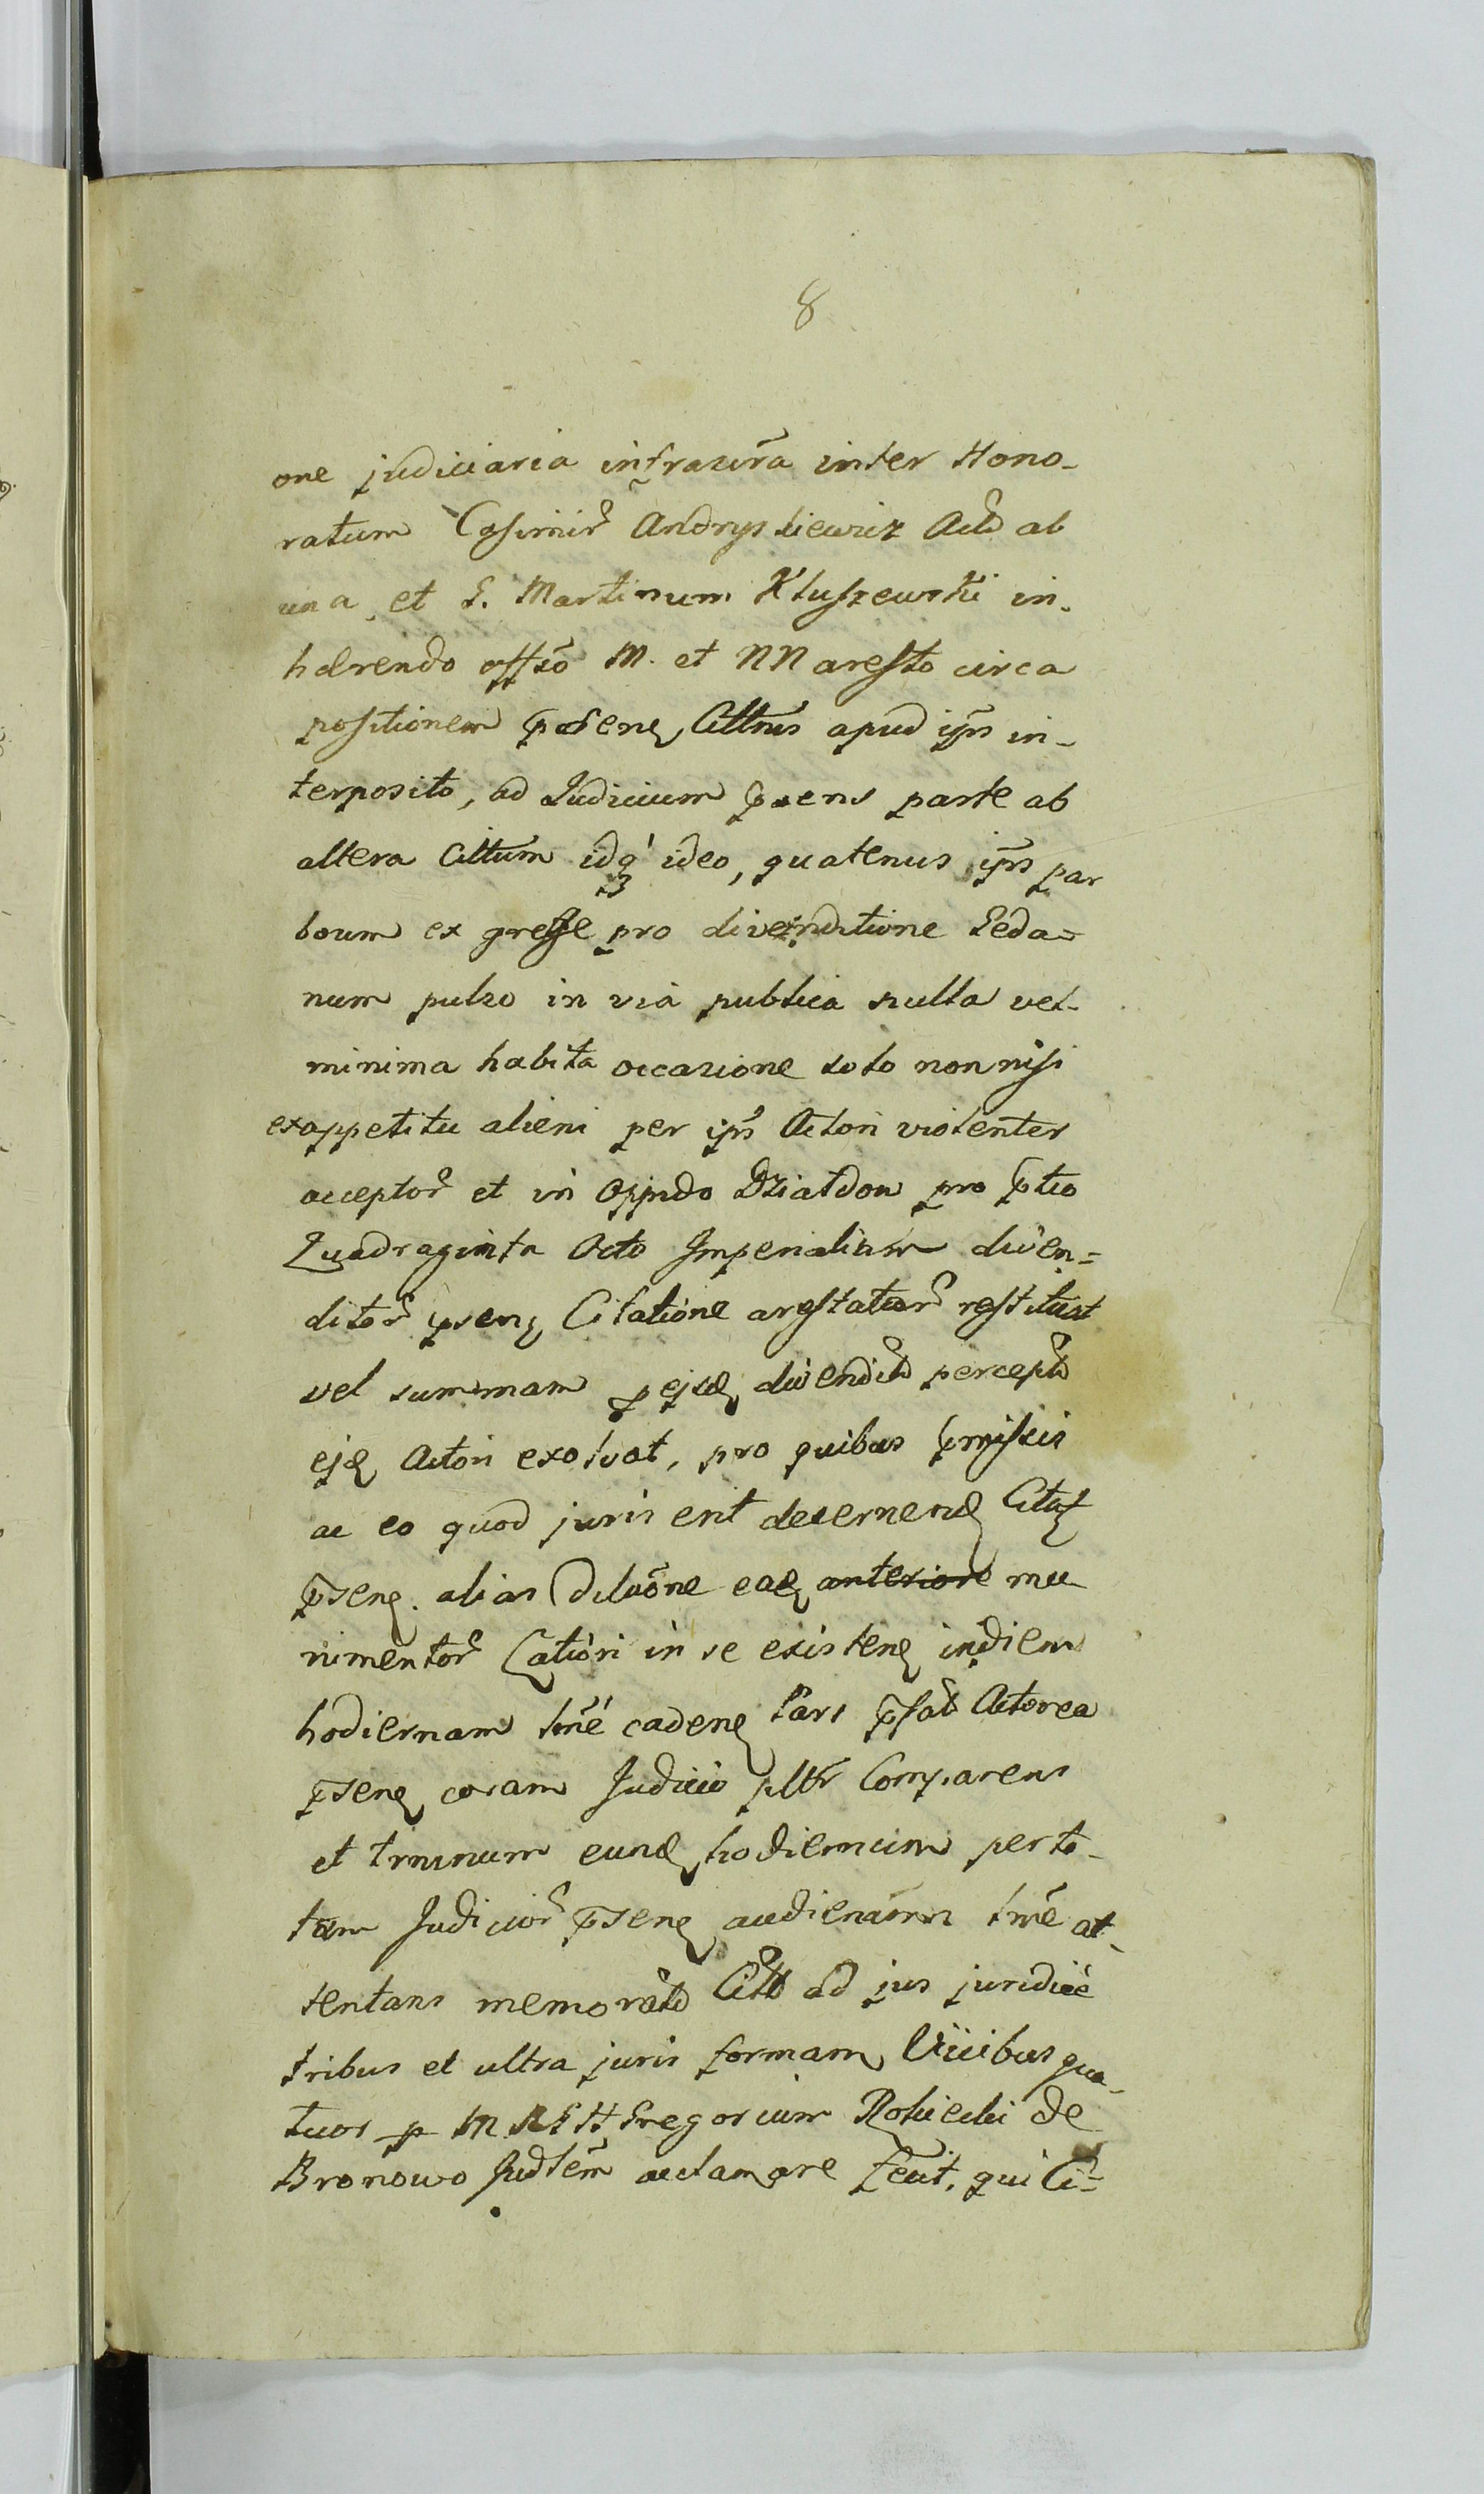 8
one judiciaria infrascra inter Hono-
ratum Casimir Andryskiewicz ab
una et G. Martinum Kluszewski in-
hærendo offso M. et NN aresto circa
positionem Citt̄nis apud ips̄ in-
terposito, ad Judicium psens parte ab
altera Cittum idq ideo, quatenus ips̄ par
boum ex grege pro divenditione Geda-
num pulso in via publica nulla vel
minima habita occasione solo non nisi
ex appetitu alieni per ips̄ Actori violenter
acceptor et in Oppido Dzialdow pro ptio
Quadraginta Octo Imperialium diven-
ditor psenꝫ Citatione arestator restituat
vel summam p ejsdꝫ divendit percept
ejdꝫ Actori exolvat, pro quibus pmissis
ac eo quod juris erit decernendꝫ Citat
psenꝫ. alias dilaōne eadꝫ anteriore mu-
nimentor in se existenꝫ in diem
hodiernam tmē cadenꝫ Pars pfat Actorea
psenꝫ coram Judicio pltr Comparens
et trminum eundꝫ hodiernum per to-
tam Judicior psenꝫ audienam tmē at-
tentans memorat Citt ad jus juridice
tribus et ultra juris formam Vicibus qua-
tuor p M Gregorium Rokicki de
Bronowo Judlem acclamare fecit, qui Ci-